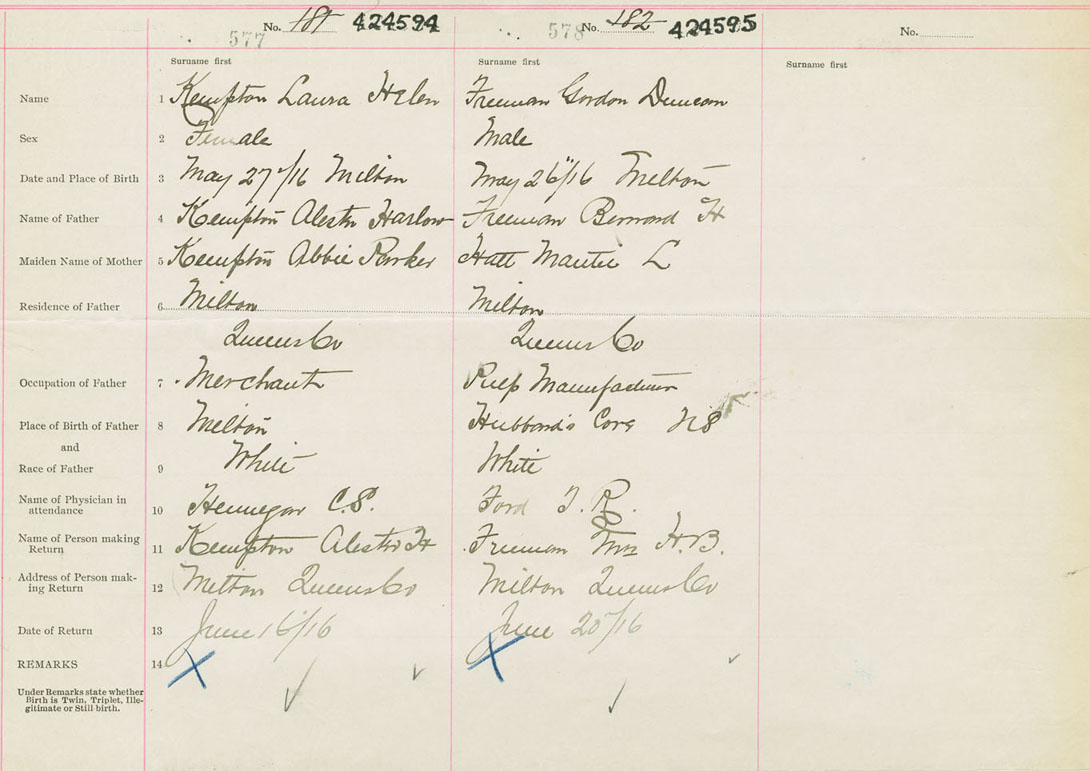 No. 181 424594 No. 182 424595 No.
577 578
Surname first Surname first Surname first
Name 1 Kempton Laura Helen Freeman Gordon Duncan
Sex 2 Female Male
Date and Place of Birth 3 May 27"/16 Milton May 26"/16 Milton
Name of Father 4 Kempton Harlow Freeman Bernard H
Maiden Name of Mother 5 Kempton Abbie Parker Hatt L
Residence of Father 6 Milton Milton
Queens Co Queens Co
Occupation of Father 7 Merchant Pulp Manufacturer
Place of Birth of Father 8 Milton Hubbard's Cove NS
and
Race of Father 9 White White
Name of Physician in
attendance 10 Hennegar C.S. Ford T. R.
Name of Person making
Return 11 Kempton H Freeman Mrs H.B.
Address of Person mak-
ing Return 12 Milton Queens Co Milton Queens Co
Date of Return 13 June 16/16 June 20/16
REMARKS 14
Under Remarks state whether
Birth is Twin, Triplet, Ille-
gitimate or Still birth.